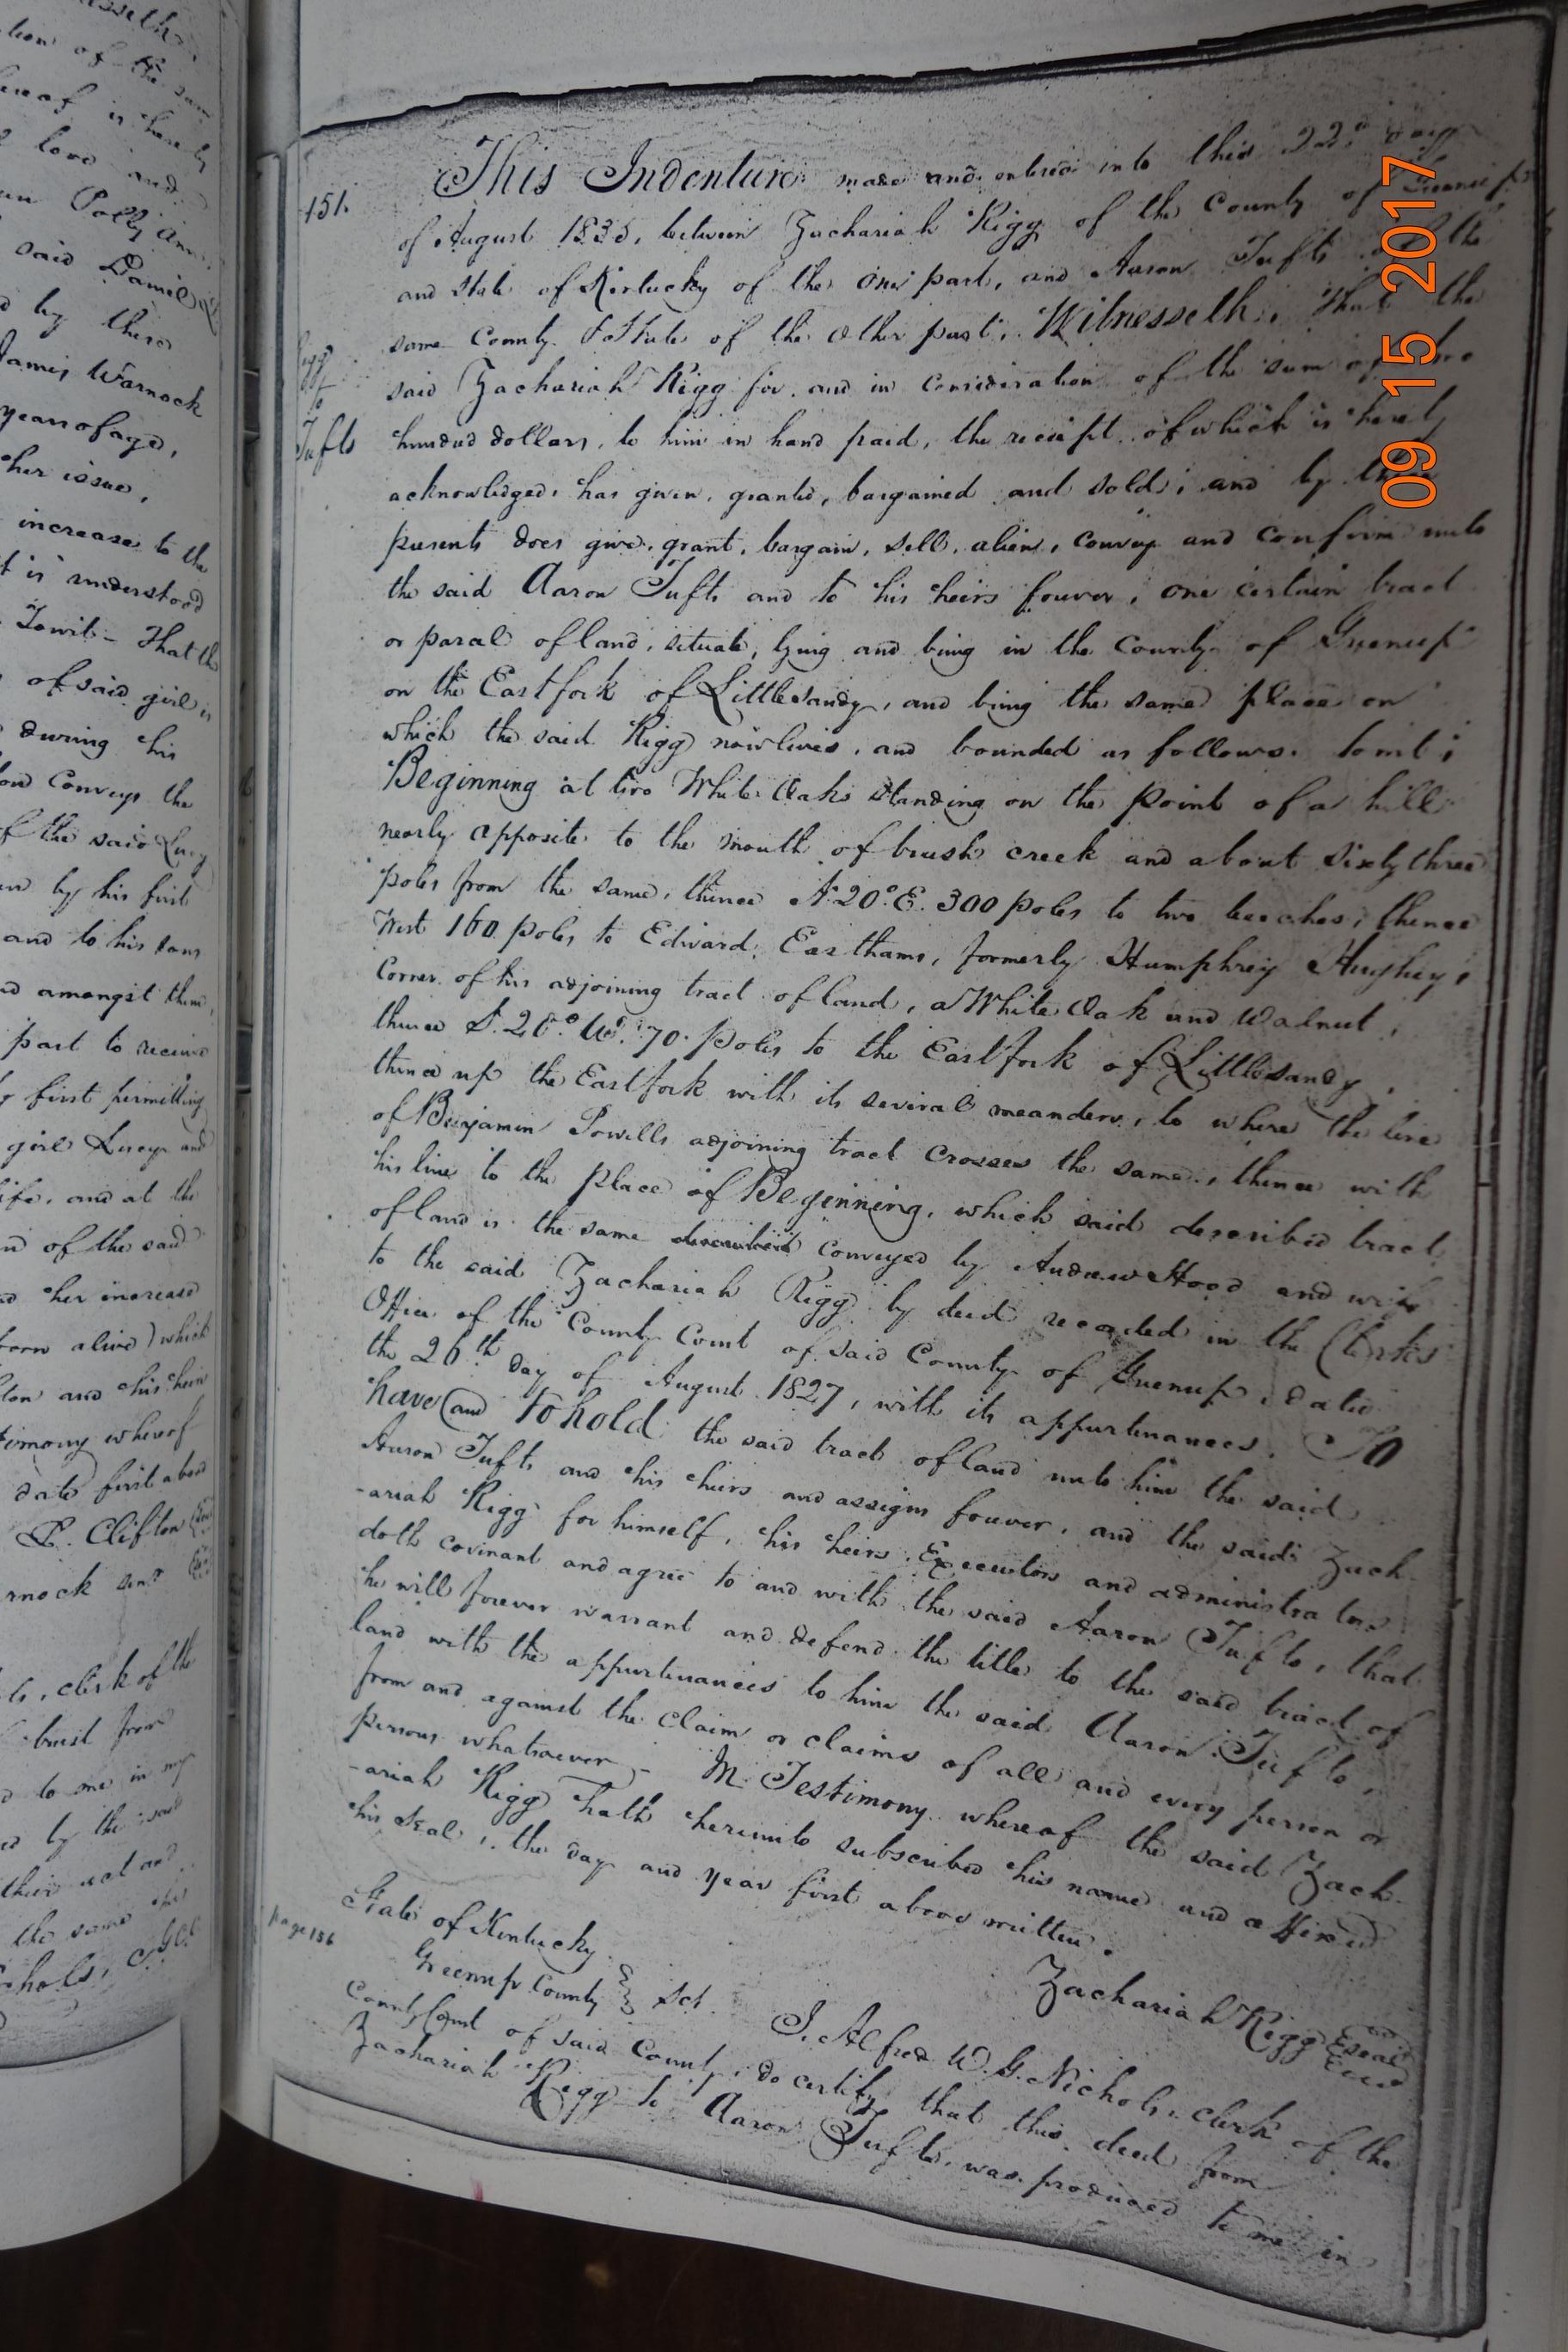 tion of the sum
hereof is hereby
love and
Polly Ann
said Daniel
by these
James Warnock
years of age,
her issue,
increase to the
it is understood
Towit - That the
of said girl is
during his
Conveys the
of the said Lucy
by his first
and to his
amongst them,
part to receive
first permitting
girl Lucy and
life, and at the
of the said
her increase
born alive) which
and his heirs
whereof
date first above
P. Clifton
clerk of the
trust from
to me in my
by the said
their
the same
151.
Rigg
to
Tufts
This Indenture made and entered into this 22d day
of August 1835, between Zachariah Rigg of the County of Greenup
and State of Kentucky of the one part, and Aaron Tufts of the
same County & State of the other part, Witnesseth, That the
said Zachariah Rigg for, and in consideration of the sum of
hundred dollars, to him in hand paid, the receipt of which is hereby
acknowledged, has given, granted, bargained and sold; and by these
presents does give, grant, bargain, sell, alien, convey and confirm unto
the said Aaron Tufts and to his heirs forever, one certain tract
or parcel of land, situate, lying and being in the County of Greenup
on the East fork of Little Sandy, and being the same place on
which the said Rigg now lives, and bounded as follows. towit;
Beginning at two White Oaks standing on the point of a hill
nearly opposite to the mouth of brush creek and about sixty three
poles from the same, thence N. 20° E. 300 poles to two beeches; thence
West 160 poles to Edward Easthams, formerly Humphrey Hughey's
Corner of his adjoining tract of land, a White Oak and Walnut,
thence S. 20° W. 70. poles to the East fork of Little Sandy,
thence up the East fork with its several meanders, to where the line
of Benjamin Powells adjoining tract crosses the same, thence with
his line to the place of Beginning, which said described tract
of land is the same conveyed by Andrew Hood and wife
to the said Zachariah Rigg by deed recorded in the Clerks
Office of the County Court of said County of Greenup, dated
the 26th day of August 1827, with its appurtenances. To
have and To hold the said tract of land unto him the said
Aaron Tufts and his heirs and assigns forever, and the said Zach-
-ariah Rigg for himself, his heirs, Executors and administrators
doth covenant and agree to and with the said Aaron Tufts, that
he will forever warrant and defend the title to the said tract of
land with the appurtenances to him the said Aaron Tufts,
from and against the claim or claims of all and every person or
persons whatsoever - In Testimony whereof the said Zach-
-ariah Rigg hath hereunto subscribed his name and affixed
his seal, the day and year first above written.
Zachariah Rigg Seal
Page 156
State of Kentucky
Greenup County Sct.
I, Alfred W. G. Nichols, clerk of the
County Court of said County, do certify that this deed from
Zachariah Rigg to Aaron Tufts, was produced to me in
09 15 2017